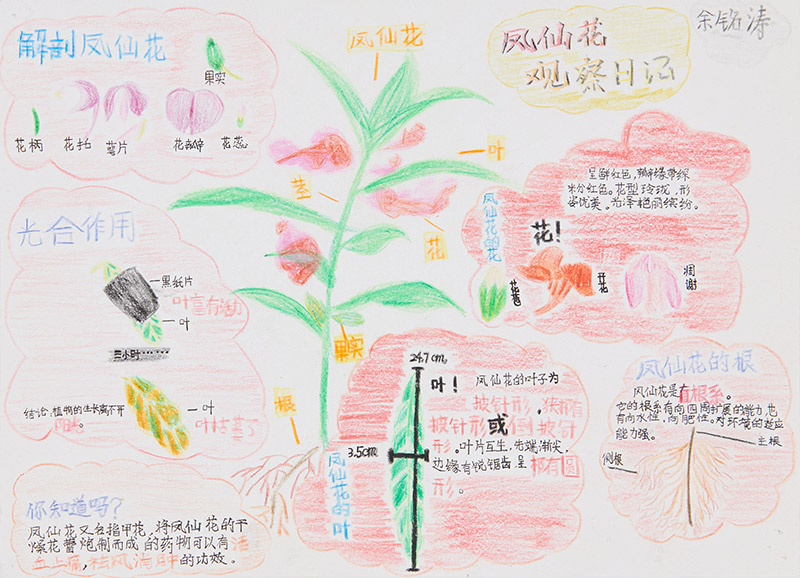 解剖凤仙花
果实
花柄
花托
萼片
花瓣
花蕊
凤仙花
凤仙花
观察日记
余铭涛
叶
茎
花
果实
根
光合作用
黑纸片
叶
三小时……
叶
叶枯萎了
结论:植物的生长离不开
阳光。
呈鲜红色,瓣缘带深
粉红色。花型玲珑,形
姿优美。光泽艳丽缤纷。
凤仙花的花
花!
花苞
开花
凋谢
24.7cm
3.5cm
叶!
凤仙花的叶子为
披针形,狭椭
披针形或倒披针
形。叶片互生,先端渐尖,
边缘有锐锯齿,呈椭圆
形。
凤仙花的叶
凤仙花的根
凤仙花是直根系。
它的根系有向四周扩展的能力,也
有向水性,向肥性。对环境的适应
能力强。
主根
侧根
你知道吗?
凤仙花又名指甲花,将凤仙花的干
燥花蕾炮制而成的药物可以有活
血止痛,祛风消肿的功效。